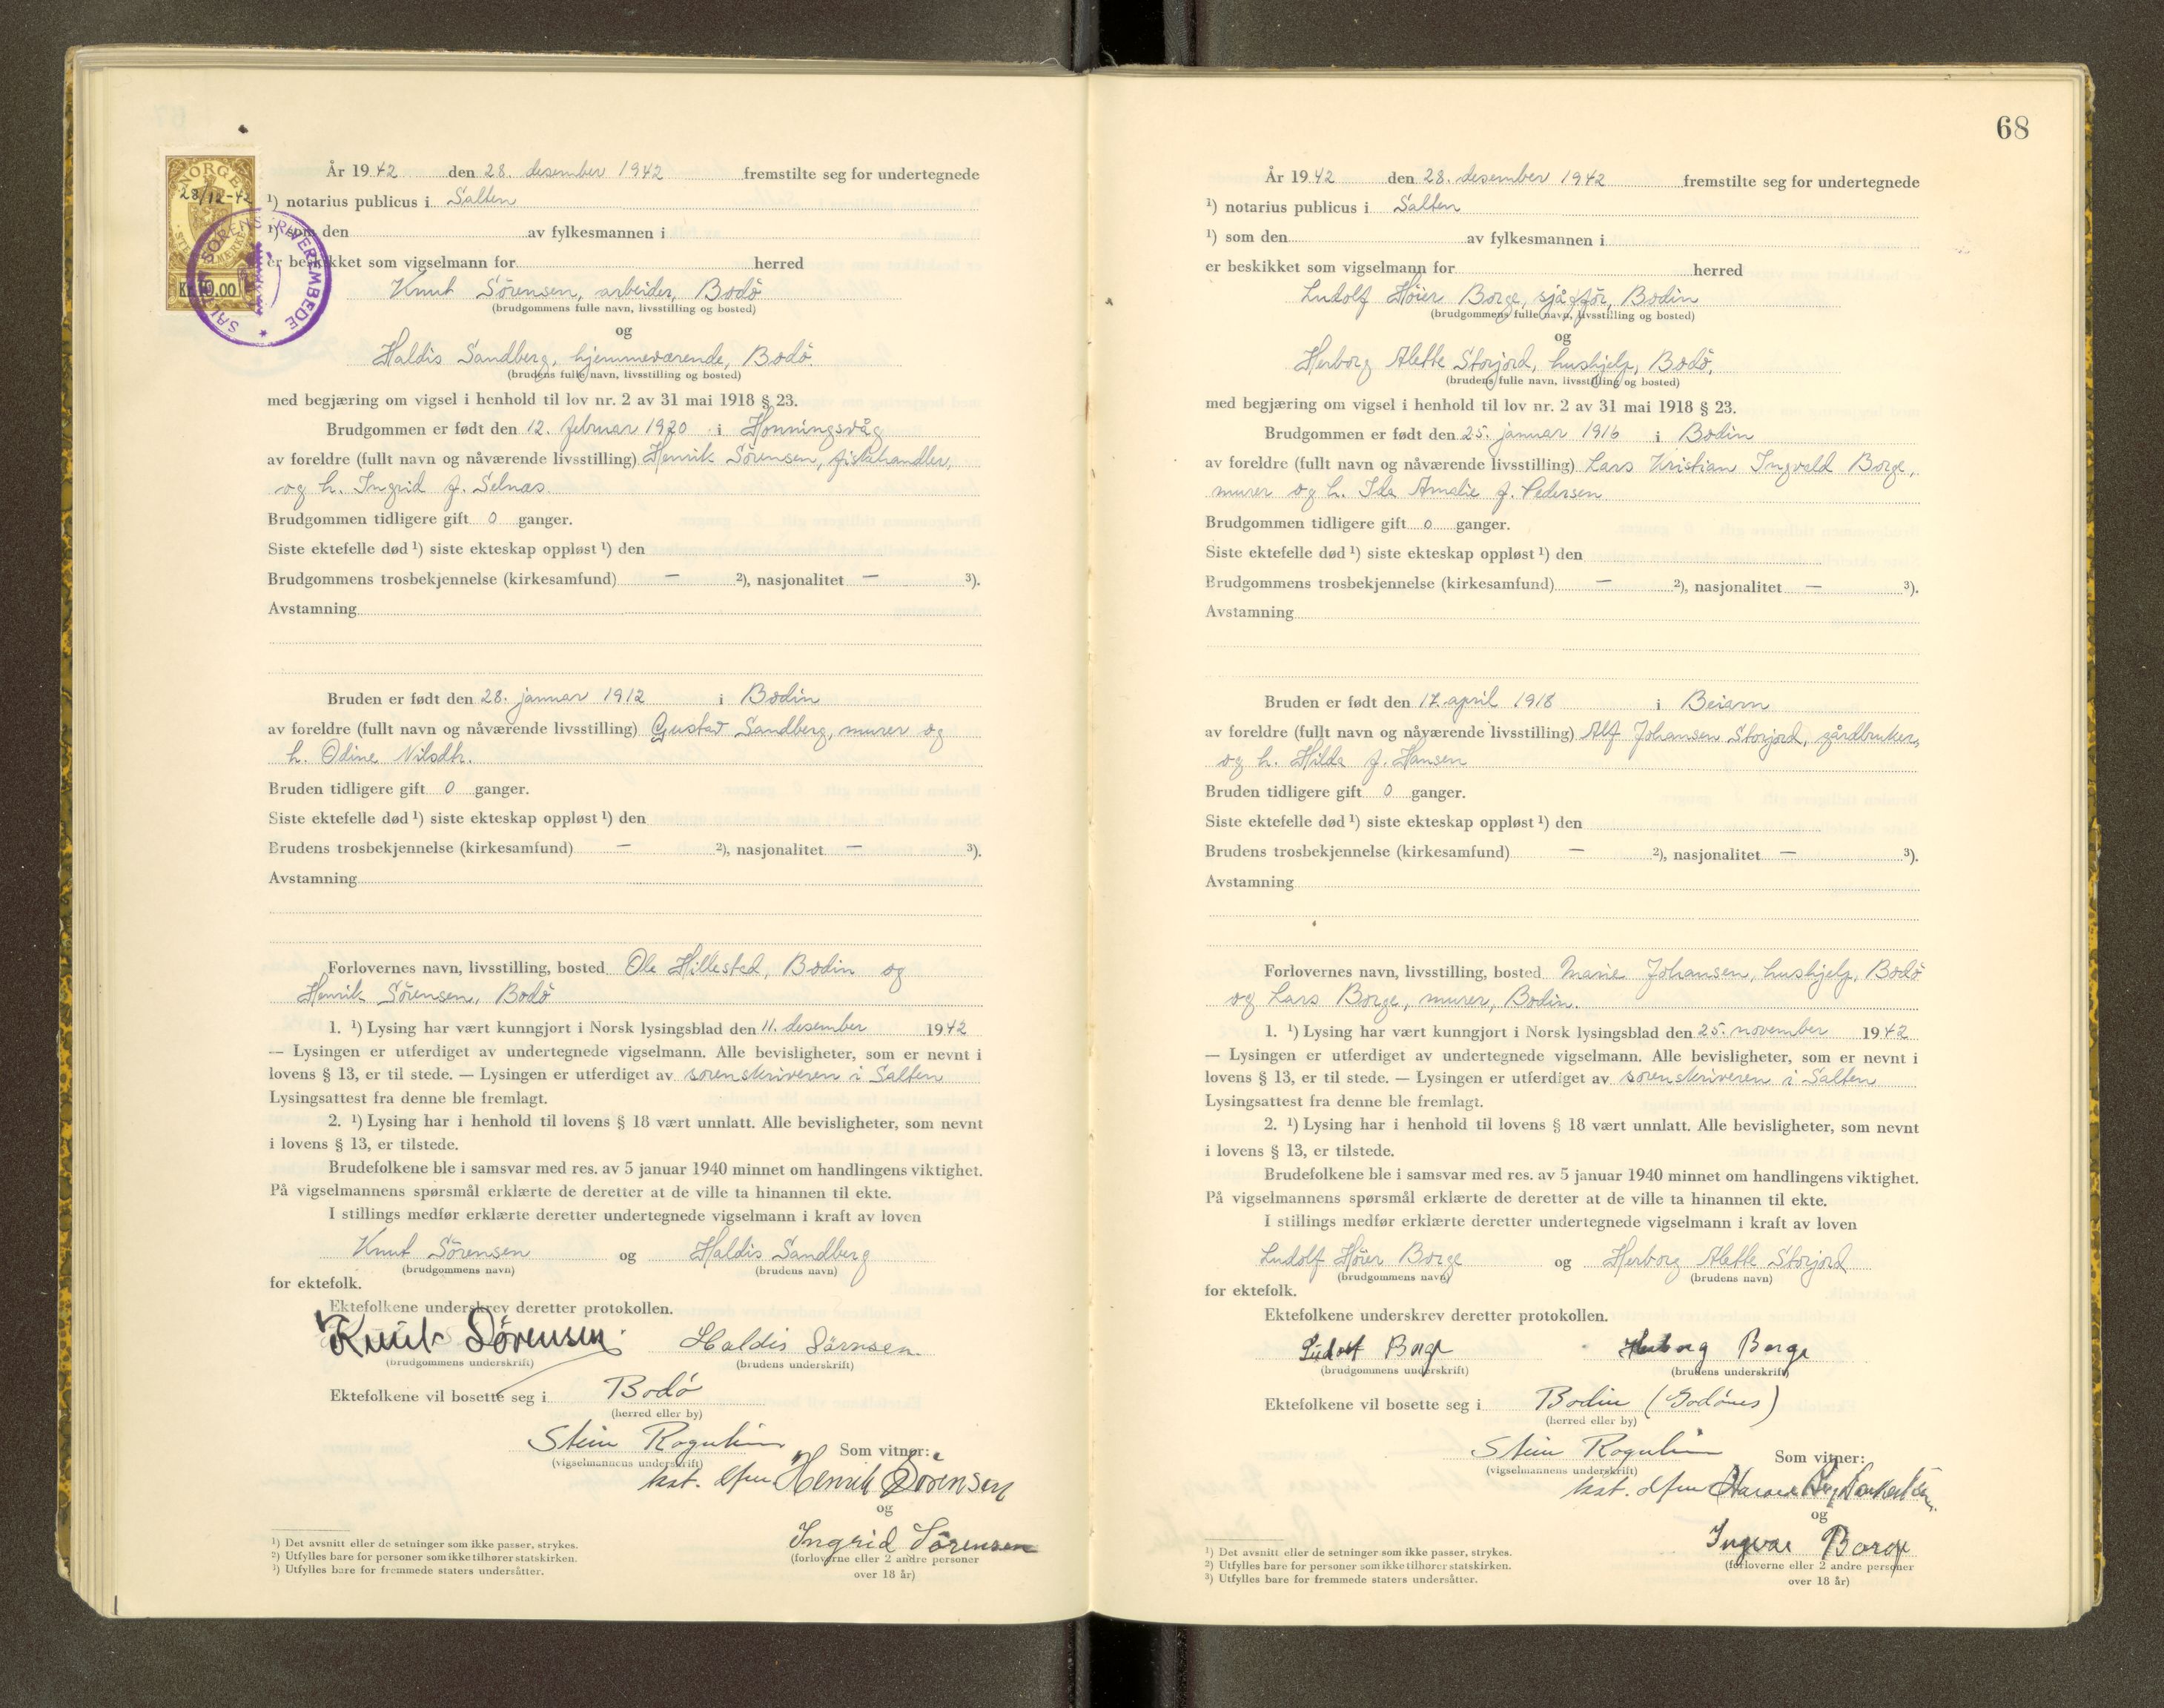 NORGE
28/12-42
STEMPELMERKE
Kr. 10.00
SALTEN SORENSKRIVEREMBEDE
År 1942 den 28. desember 1942 fremstilte seg for undertegnede
¹) notarius publicus i Salten
¹) som den av fylkesmannen i
er beskikket som vigselmann for herred
Knut Sörensen, arbeider, Bodö
(brudgommens fulle navn, livsstilling og bosted)
og
Haldis Sandberg, hjemmeværende, Bodö.
(brudens fulle navn, livsstilling og bosted)
med begjæring om vigsel i henhold til lov nr. 2 av 31 mai 1918 § 23.
Brudgommen er født den 12. februar 1920 i Honningsvåg
av foreldre (fullt navn og nåværende livsstilling) Henrik Sörensen, fiskehandler,
og h. Ingrid f. Selnæs.
Brudgommen tidligere gift 0 ganger.
Siste ektefelle død ¹) siste ekteskap oppløst ¹) den
Brudgommens trosbekjennelse (kirkesamfund) — ²), nasjonalitet — ³).
Avstamning
Bruden er født den 28. januar 1912 i Bodin
av foreldre (fullt navn og nåværende livsstilling) Gustav Sandberg, murer og
h. Odine Nilsdtr.
Bruden tidligere gift 0 ganger.
Siste ektefelle død ¹) siste ekteskap oppløst ¹) den
Brudens trosbekjennelse (kirkesamfund) — ²), nasjonalitet — ³).
Avstamning
Forlovernes navn, livsstilling, bosted Ole Hillestad, Bodin og
Henrik Sörensen, Bodö
1. ¹) Lysing har vært kunngjort i Norsk lysingsblad den 11. desember 1942
— Lysingen er utferdiget av undertegnede vigselmann. Alle bevisligheter, som er nevnt i
lovens § 13, er til stede. — Lysingen er utferdiget av sorenskriveren i Salten
Lysingsattest fra denne ble fremlagt.
2. ¹) Lysing har i henhold til lovens § 18 vært unnlatt. Alle bevisligheter, som nevnt
i lovens § 13, er tilstede.
Brudefolkene ble i samsvar med res. av 5 januar 1940 minnet om handlingens viktighet.
På vigselmannens spørsmål erklærte de deretter at de ville ta hinannen til ekte.
I stillings medfør erklærte deretter undertegnede vigselmann i kraft av loven
Knut Sörensen og Haldis Sandberg
(brudgommens navn) (brudens navn)
for ektefolk.
Ektefolkene underskrev deretter protokollen.
Knut Sörensen. Haldis Sörnsen.
(brudgommens underskrift) (brudens underskrift)
Ektefolkene vil bosette seg i Bodó
(herred eller by)
Stein Rognlien Som vitner:
(vigselmannens underskrift)
kst. dfm Henrik Sörensen
og
Ingrid Sörensen
(forloverne eller 2 andre personer
over 18 år)
¹) Det avsnitt eller de setninger som ikke passer, strykes.
²) Utfylles bare for personer som ikke tilhører statskirken.
³) Utfylles bare for fremmede staters undersåtter.
68
År 1942 den 28. desember 1942 fremstilte seg for undertegnede
¹) notarius publicus i Salten
¹) som den av fylkesmannen i
er beskikket som vigselmann for herred
Ludolf Höier Borge, sjåfför, Bodin
(brudgommens fulle navn, livsstilling og bosted)
og
Herborg Alette Storjord, hushjelp, Bodö.
(brudens fulle navn, livsstilling og bosted)
med begjæring om vigsel i henhold til lov nr. 2 av 31 mai 1918 § 23.
Brudgommen er født den 25. januar 1916 i Bodin
av foreldre (fullt navn og nåværende livsstilling) Lars Kristian Ingvald Borge,
murer og h. Ida Amalie f. Pedersen
Brudgommen tidligere gift 0 ganger.
Siste ektefelle død ¹) siste ekteskap oppløst ¹) den
Brudgommens trosbekjennelse (kirkesamfund) — ²), nasjonalitet — ³).
Avstamning
Bruden er født den 17. april 1918 i Beiarn
av foreldre (fullt navn og nåværende livsstilling) Alf Johansen Storjord, gårdbruker,
og h. Hilda f. Hansen
Bruden tidligere gift 0 ganger.
Siste ektefelle død ¹) siste ekteskap oppløst ¹) den
Brudens trosbekjennelse (kirkesamfund) — ²), nasjonalitet — ³).
Avstamning
Forlovernes navn, livsstilling, bosted Marie Johansen, hushjelp, Bodö
og Lars Borge, murer, Bodin.
1. ¹) Lysing har vært kunngjort i Norsk lysingsblad den 25. november 1942
— Lysingen er utferdiget av undertegnede vigselmann. Alle bevisligheter, som er nevnt i
lovens § 13, er til stede. — Lysingen er utferdiget av sorenskriveren i Salten
Lysingsattest fra denne ble fremlagt.
2. ¹) Lysing har i henhold til lovens § 18 vært unnlatt. Alle bevisligheter, som nevnt
i lovens § 13, er tilstede.
Brudefolkene ble i samsvar med res. av 5 januar 1940 minnet om handlingens viktighet.
På vigselmannens spørsmål erklærte de deretter at de ville ta hinannen til ekte.
I stillings medfør erklærte deretter undertegnede vigselmann i kraft av loven
Ludolf Höier Borge og Herborg Alette Storjord
(brudgommens navn) (brudens navn)
for ektefolk.
Ektefolkene underskrev deretter protokollen.
Ludolf Borge Herborg Borge
(brudgommens underskrift) (brudens underskrift)
Ektefolkene vil bosette seg i Bodin (Godönes)
(herred eller by)
Stein Rognlien Som vitner:
(vigselmannens underskrift)
kst. dfm
og
Ingvar Borge
(forloverne eller 2 andre personer
over 18 år)
¹) Det avsnitt eller de setninger som ikke passer, strykes.
²) Utfylles bare for personer som ikke tilhører statskirken.
³) Utfylles bare for fremmede staters undersåtter.